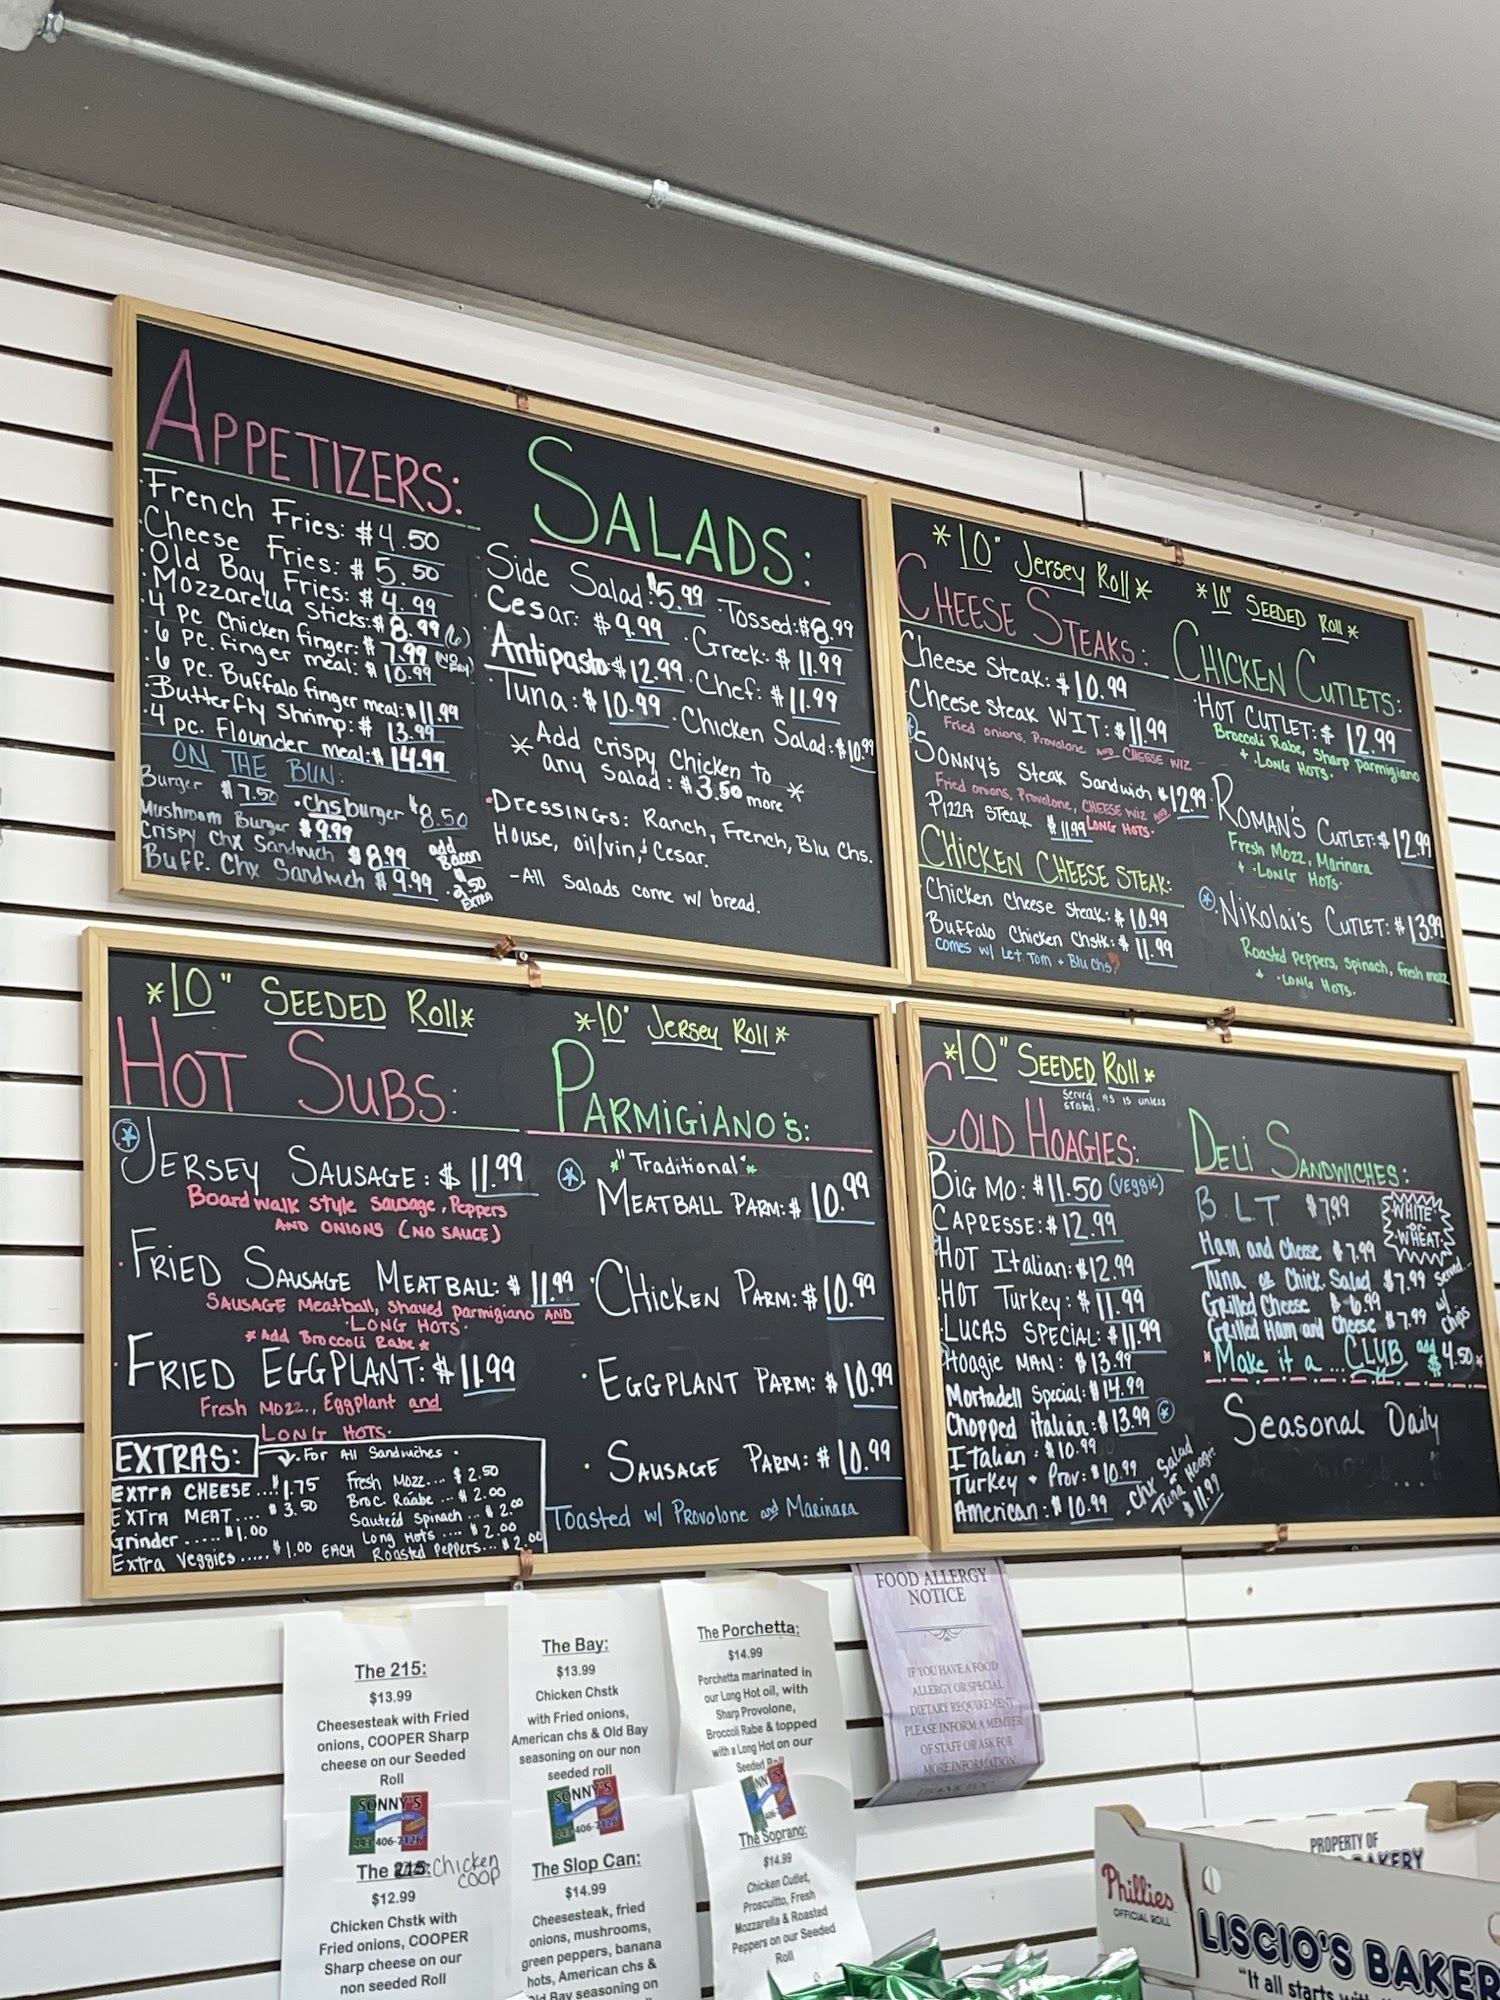 APPETIZERS:
·French Fries: $4.50
·Cheese Fries: $5.50
·Old Bay Fries: $4.99
·Mozzarella Sticks: $8.99 (6)
·4 pc Chicken finger: $7.99 (NO FRY)
·6 pc. finger meal: $10.99
·6 pc. Buffalo finger meal: $11.99
·Butterfly Shrimp: $13.99
·4 pc. Flounder meal: $14.99
ON THE BUN:
Burger $7.50 ·Chsburger $8.50
Mushroom Burger $9.99
Crispy chx Sandwich $8.99
Buff. Chx Sandwich $9.99
add
Bacon
2.50
EXTRA
SALADS:
Side Salad: $5.99 ·Tossed: $8.99
Cesar: $9.99 ·Greek: $11.99
·Antipasto $12.99 ·Chef: $11.99
·Tuna: $10.99 ·Chicken Salad: $10.99
* Add crispy Chicken to
any salad: $3.50 more *
·Dressings: Ranch, French, Blu Chs.
House, oil/vin, & Cesar.
-All Salads come w/ bread.
*10" Jersey Roll*
CHEESE STEAKS:
Cheese Steak: $10.99
Cheese steak WIT: $11.99
Fried onions, Provalone AND CHEESE WIZ
SONNY'S Steak Sandwich $12.99
Fried onions, Provolone, CHEESE WIZ AND
LONG HOTS·
PIZZA STEAK $11.99
CHICKEN CHEESE STEAK:
·Chicken Cheese Steak: $10.99
Buffalo Chicken Chstk: $11.99
comes w/ Let Tom + Blu Chs
*10" SEEDED Roll*
CHICKEN CUTLETS:
·HOT CUTLET: $12.99
Broccoli Rabe, Sharp Parmigiano
+ ·LONG HOTS·
·ROMAN'S CUTLET: $12.99
Fresh Mozz, Marinara
+ ·LONG HOTS·
·Nikolai's CUTLET: $13.99
Roasted Peppers, Spinach, Fresh mozz
+ ·LONG HOTS·
*10" SEEDED Roll*
HOT SUBS:
JERSEY SAUSAGE: $11.99
Boardwalk style Sausage, Peppers
AND ONIONS (NO SAUCE)
·FRIED SAUSAGE MEATBALL: $11.99
SAUSAGE Meatball, Shaved parmigiano AND
·LONG HOTS·
*Add Broccoli Rabe*
·FRIED EGGPLANT: $11.99
Fresh Mozz., Eggplant and
LONG HOTS·
EXTRAS: ·For All Sandwiches·
EXTRA CHEESE...$1.75
EXTRA MEAT.... $3.50
Grinder .....$1.00
Extra Veggies.....$1.00 EACH
Fresh Mozz... $2.50
Broc. Raabe ...$2.00
Sauteéd Spinach...$2.00
Long Hots ....$2.00
Roasted Peppers...$2.00
*10" Jersey Roll*
PARMIGIANO'S:
*"Traditional"*
MEATBALL PARM: $10.99
·CHICKEN PARM: $10.99
·EGGPLANT PARM: $10.99
·SAUSAGE PARM: $10.99
Toasted w/ Provolone and Marinara
*10" SEEDED Roll*
Served AS is unless
stated.
COLD HOAGIES:
BIG MO: $11.50 (Veggie)
CAPRESSE: $12.99
HOT Italian: $12.99
·HOT Turkey: $11.99
·LUCAS SPECIAL: $11.99
Hoagie MAN: $13.99
Mortadell Special: $14.99
Chopped italian: $13.99
Italian: $10.99
Turkey + Prov: $10.99
American: $10.99
·Chx Salad
Tuna or Hoagie
$11.99
DELI SANDWICHES:
B.L.T. $7.99
WHITE
or
WHEAT
Ham and Cheese $7.99
Tuna or Chick. Salad $7.99
Grilled Cheese $6.99
Grilled Ham and Cheese $7.99
Served
w/
Chips
*Make it a ... CLUB add $4.50*
Seasonal Daily
The 215:
$13.99
Cheesesteak with Fried
onions, COOPER Sharp
cheese on our Seeded
Roll
SONNY'S
The Bay:
$13.99
Chicken Chstk
with Fried onions,
American chs & Old Bay
seasoning on our non
seeded roll
SONNY'S
The Porchetta:
$14.99
Porchetta marinated in
our Long Hot oil, with
Sharp Provolone,
Broccoli Rabe & topped
with a Long Hot on our
Seeded Roll
FOOD ALLERGY
NOTICE
IF YOU HAVE A FOOD
ALLERGY OR SPECIAL
DIETARY REQUIREMENT
PLEASE INFORM A MEMBER
OF STAFF OR ASK FOR
MORE INFORMATION
The 215: Chicken
COOP
$12.99
Chicken Chstk with
Fried onions, COOPER
Sharp cheese on our
non seeded Roll
The Slop Can:
$14.99
Cheesesteak, fried
onions, mushrooms,
green peppers, banana
hots, American chs &
Old Bay seasoning on
The Soprano:
$14.99
Chicken Cutlet,
Proscuitto, Fresh
Mozzarella & Roasted
Peppers on our Seeded
Roll
PROPERTY OF
BAKERY
Phillies
OFFICIAL ROLL
LISCIO'S BAKER
"It all starts